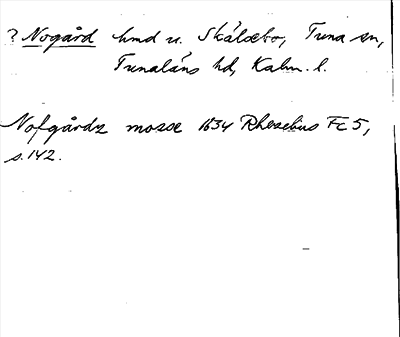 ? Nogård hmd u. Skälsebo, Tuna sn,
Tunaläns hd, Kalm. l.
Nofgårdz mosse 1634 Rhezelius Fc 5,
s. 142.